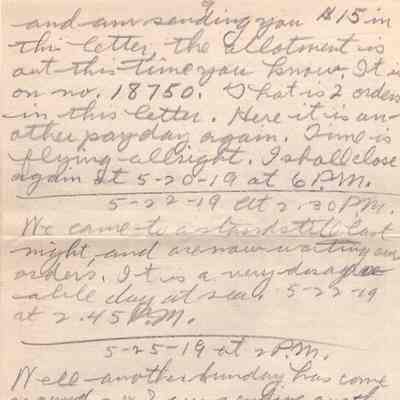 and am sending you $15 in
this letter, the allotment is
out this time you know. It is
on no. 18750. That is 2 orders
in this letter. Here it is an-
other payday again. Time is
flying allright. I shall close
again at 5-20-19 at 6 P.M.
5-22-19 at 2.30 P.M.
We came to a standstill last
night, and are now waiting our
orders. It is a very disagree
able day at sea. 5-22-19
at 2.45 P.M.
5-25-19 at 2 P.M.
Well another Sunday has come